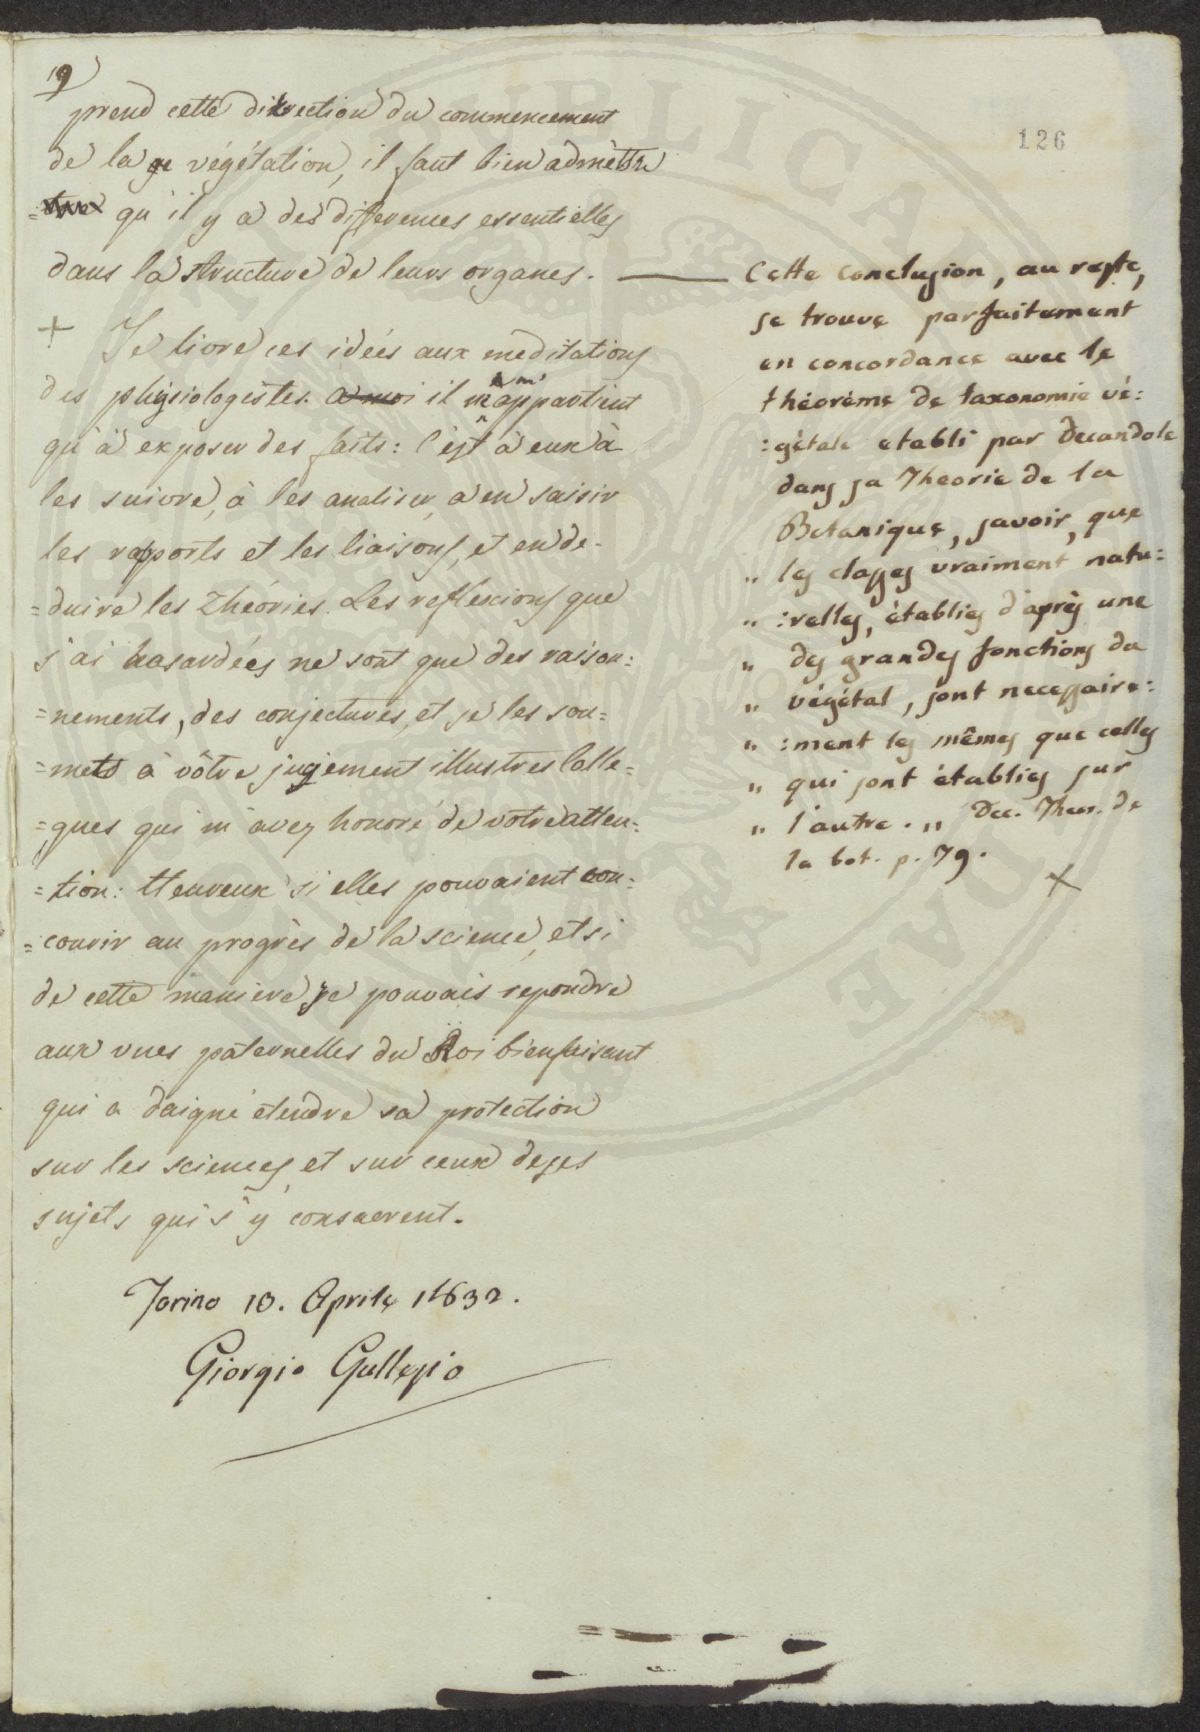 19
126
prend cette direction du commencement
de la végétation, il faut bien admettre
qu'il y a des differences essentielles
dans la structure de leurs organes. ———
+ Je livre ces idées aux meditations
des physiologistes. a moi il m'appartient
qu'à exposer des faits: c'est à eux à
les suivre, à les analiser, a en saisir
les rapports et les liaisons, et en de-
=duire les Théories. Les reflexions que
j'ai hasardées ne sont que des raison:
=nements, des conjectures, et je les sou=
=mets à vôtre jugement illustres Colle=
=gues qui m'avez honoré de votre atten:
=tion: Heureux si elles pouvaient con:
=courir au progrès de la science, et si
de cette maniere je pouvais repondre
aux vues paternelles du Roi bienfaisant
qui a daigné etendre sa protection
sur les sciences et sur ceux de ses
sujets qui s'y consacrent.
Torino 10. Aprile 1832.
Giorgio Gallesio
Cette conclusion, au reste,
se trouve parfaitement
en concordance avec le
théorème de taxonomie vé:
:gétale etabli par Decandole
dans sa Theorie de la
Botanique, savoir, que
" les classes vraiment natu:
" :relles, établies d'après une
" des grandes fonctions du
" végétal, sont necessaire:
" :ment les mêmes que celles
" qui sont établies sur
" l'autre. „ Dec. Theor. de
la bot. p. 79.
+